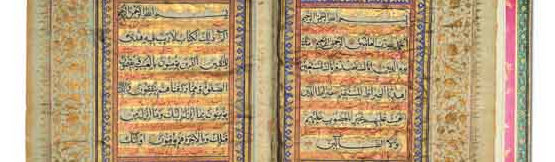 بسم الله الرحمن الرحيم
الحمد لله رب العالمين الرحمن الرحيم ملك
يوم الدين اياك نعبد واياك نستعين
اهدنا الصراط المستقيم صراط الذين ا
نعمت عليهم غير المغضوب عليهم
ولا الضالين
بسم الله الرحمن الرحيم
الم ذلك الكتاب لا ريب فيه هدى
للمتقين الذين يؤمنون بالغيب ويقيمون
الصلوة ومما رزقناهم ينفقون والذين
يؤمنون بما انزل اليك وما انزل من
قبلك وبالاخرة هم يوقنون اولئك